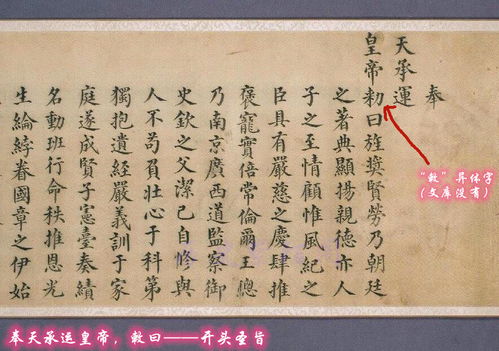 奉
天承運
皇帝勑曰旌奬賢勞乃朝廷
之著典顯揚親德亦人
子之至情顧惟風紀之
臣具有嚴慈之慶肆推
褒寵實倍常倫爾王總
乃南京廣西道監察御
史欽之父潔己自修與
人不苟負壯心于科第
獨抱遺經嚴義訓于家
庭遂成賢子憲臺奏績
名動班行命秩推恩光
生綸綍眷國章之伊始
"敕"异体字
（文库没有）
奉天承运皇帝，敕曰——开头圣旨